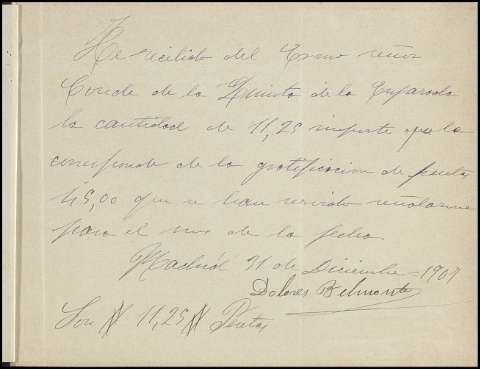 He recibido del Exmo señor
Conde de la Quinta de la Enjarada
la cantidad de 11,25 importe que le
corresponde de la gratificacion de pesetas
45,00 que se han servido señalarme
para el mes de la fecha
Madrid 31 de Diciembre 1909
Dolores Belmonte
Son # 11,25 # Pesetas